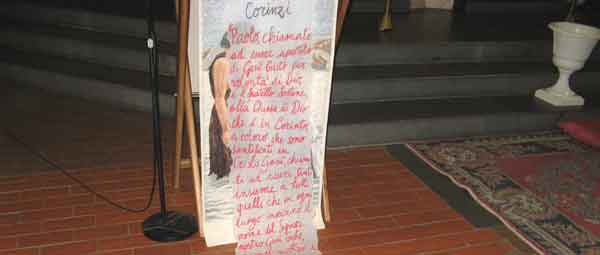 Corinzi
Paolo, chiamato
ad essere apostolo
di Gesù Cristo per
volontà di Dio,
e il fratello Sostene,
alla Chiesa di Dio
che è in Corinto,
a coloro che sono
santificati in
Cristo Gesù, chiama
ti ad essere santi
insieme a tutti
quelli che in ogni
luogo invocano il
nome del Signore
nostro Gesù Cristo,